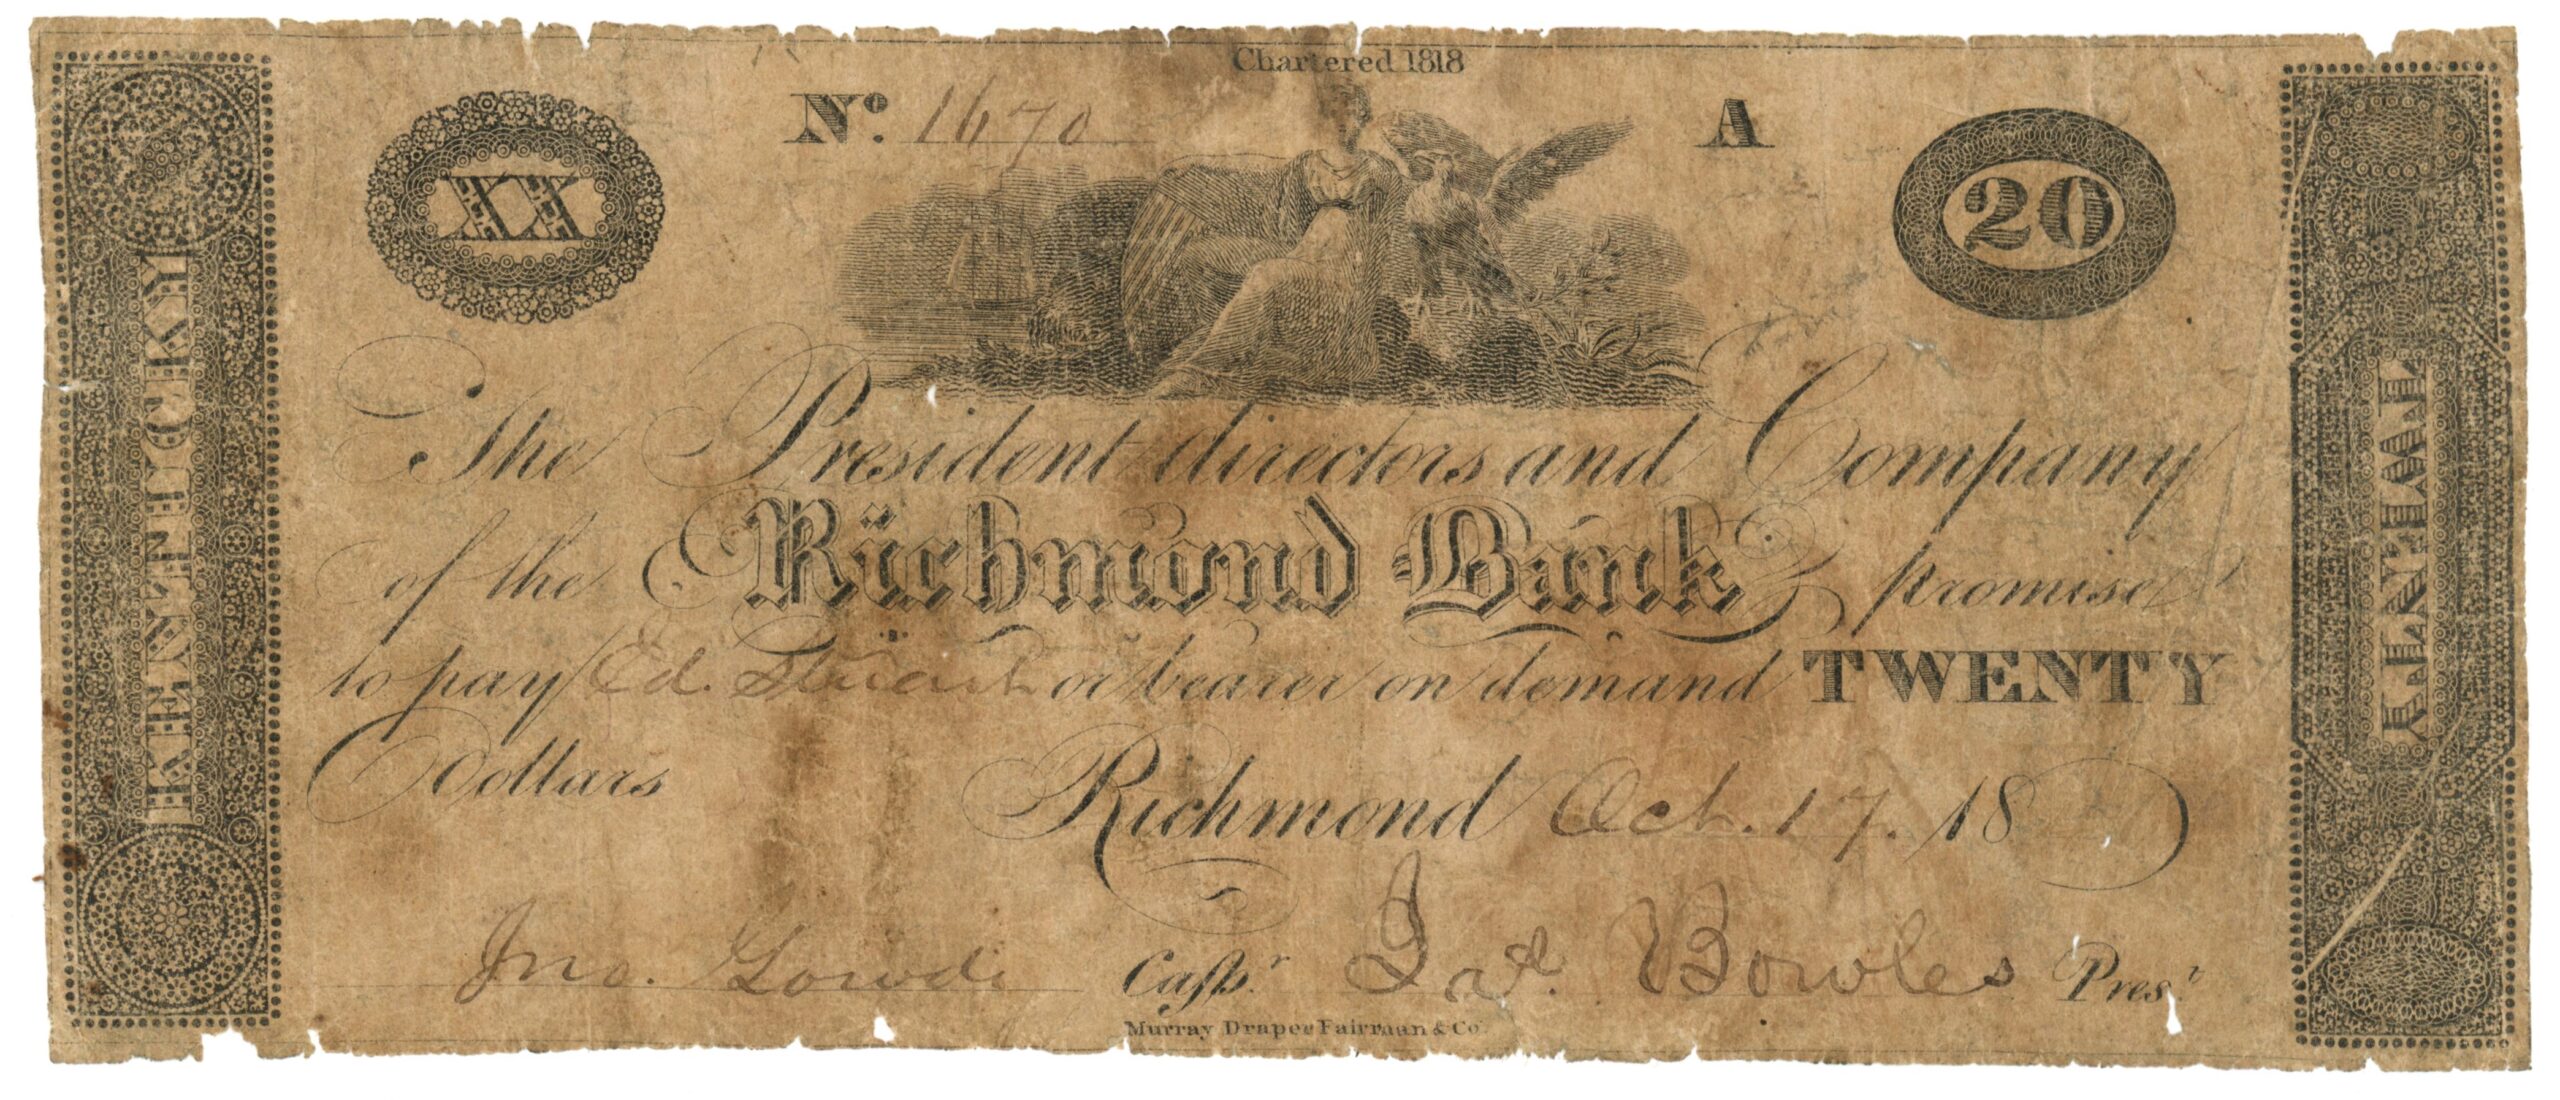 Chartered 1818
No. 1670 A
XX
20
KENTUCKY
TWENTY
The President directors and Company
of the Richmond Bank promise
to pay Ed. Stuart or bearer on demand TWENTY
Dollars Richmond Oct. 17. 18
Jno. Cashr. Bowles Prest
Murray Draper Fairman & Co.